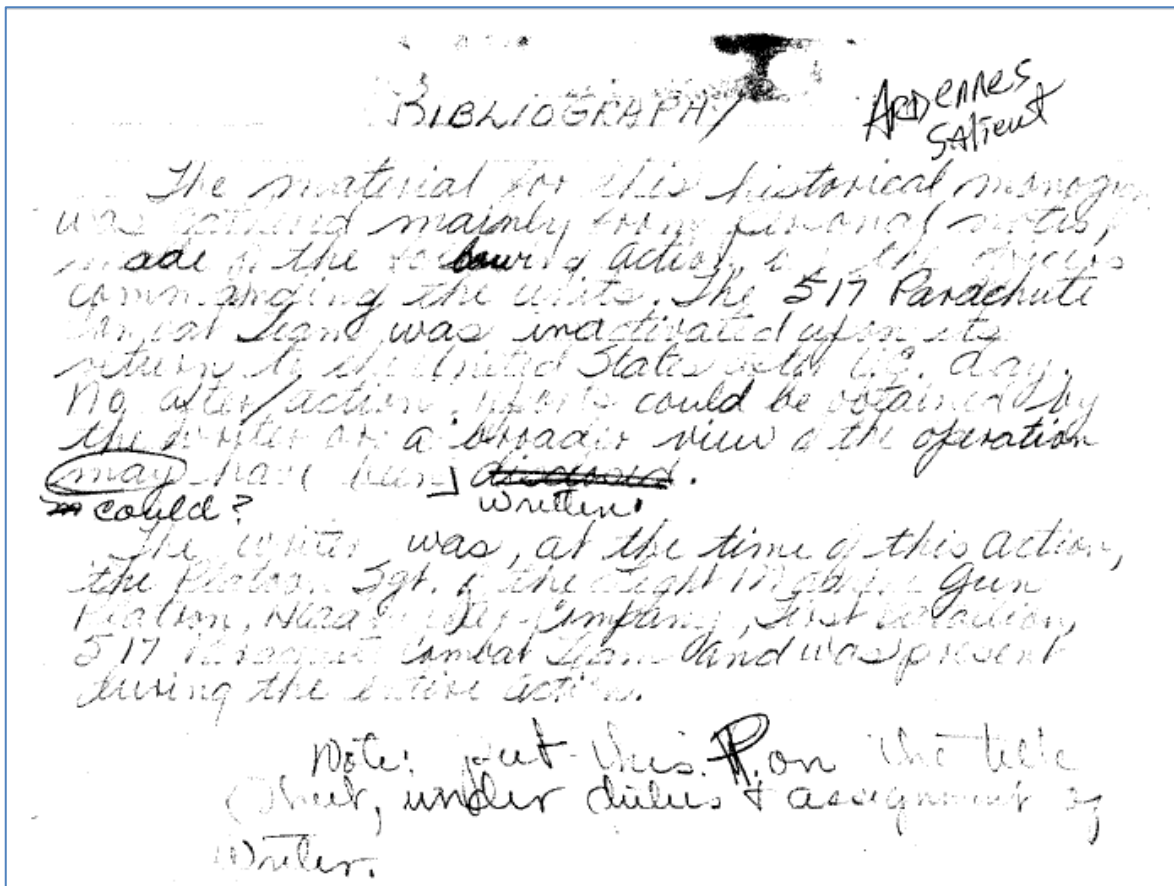 BIBLIOGRAPHY
ARDENNES
SAlient
The material for this historical monogra
was gathered mainly from personal notes,
made of the following action, by the officers
commanding the units. The 517 Parachute
Combat Team was inactivated upon its
return to the United States after V.E. day.
No after/action reports could be obtained by
the writer or a broader view of the operation
may have been discussed.
could? written.
The writer was, at the time of this action,
the Platoon Sgt. of the Light Machine Gun
Platoon, Headquarters Company, First Battalion,
517 Parachute Combat Team and was present
during the entire action.
Note: put this P. on the title
sheet, under duties & assignment of
Writer.